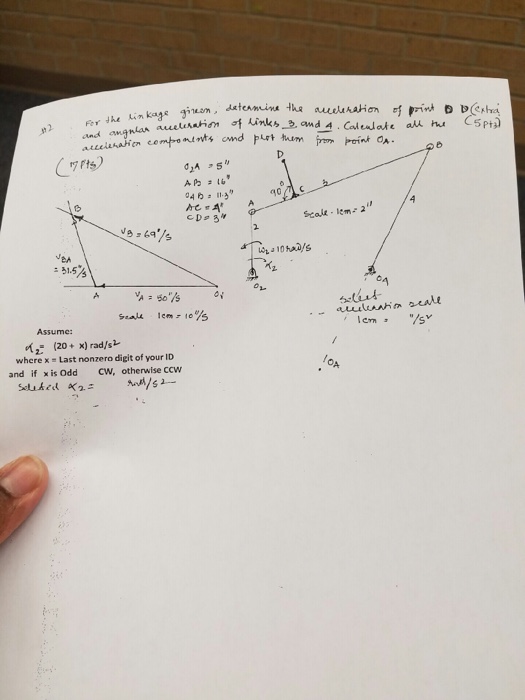 #2 For the linkage given, determine the acceleration of point D (extra 5 pts)
and angular acceleration of links 3 and 4. Calculate all the
acceleration components and plot them from point OA.
(17 pts)
O2A = 5"
AB = 16"
O4B = 11.3"
AC = 4"
CD = 3"
D
B
90°
C
3
A
Scale - 1cm = 2"
4
2
ω2 = 10 rad/s
α2
O2
O4
B
VB = 69"/s
VBA
= 31.5"/s
A
VA = 50"/s
OV
Scale 1cm = 10"/s
select
acceleration scale
1cm = "/s²
OA
Assume:
α2= (20 + x) rad/s2
where x = Last nonzero digit of your ID
and if x is Odd CW, otherwise CCW
Selected α2 = rad/s2